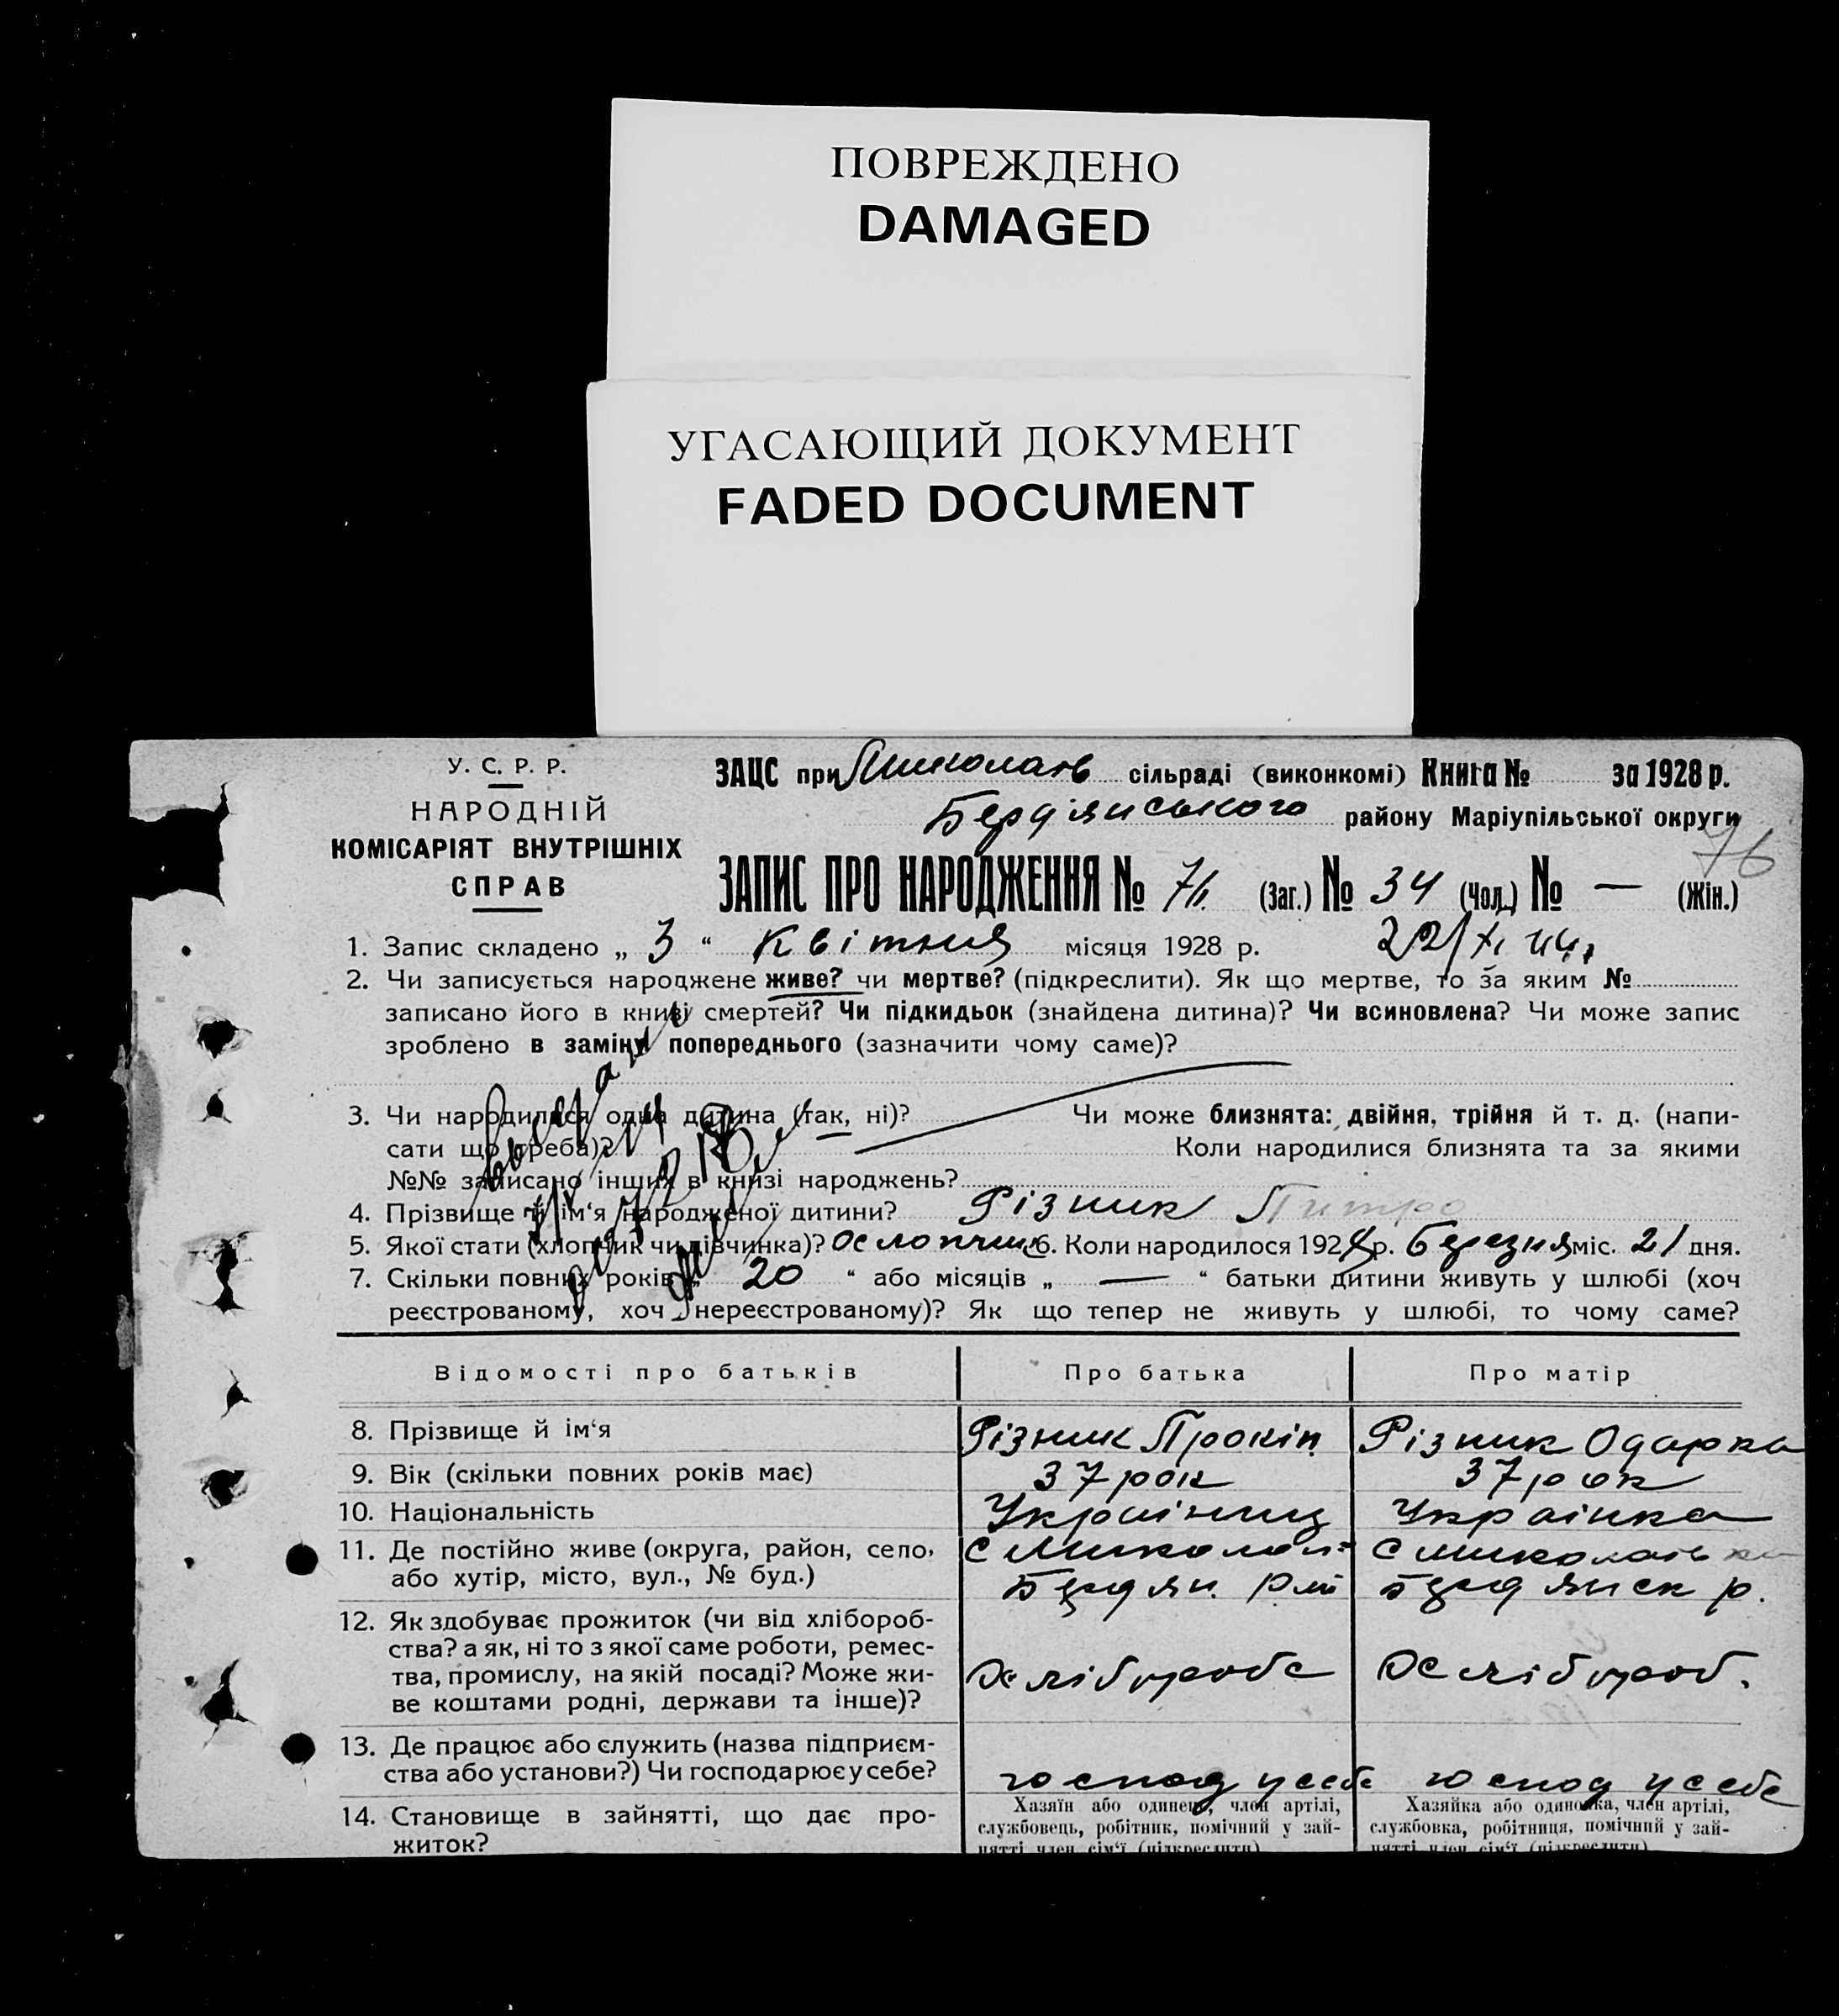 ПОВРЕЖДЕНО
DAMAGED
УГАСАЮЩИЙ ДОКУМЕНТ
FADED DOCUMENT
У. С. Р. Р.
НАРОДНІЙ
КОМІСАРІЯТ ВНУТРІШНІХ
СПРАВ
ЗАЦС при Миколаїв сільраді (виконкомі) Книга № за 1928 р.
Бердянського району Маріупільської округи
76
ЗАПИС ПРО НАРОДЖЕННЯ № 76 (Заг.) № 34 (Чол.) № — (Жін.)
1. Запис складено „ 3 “ Квітня місяця 1928 р.
22/XI 44
2. Чи записується народжене живе? чи мертве? (підкреслити). Як що мертве, то за яким №
записано його в книзі смертей? Чи підкидьок (знайдена дитина)? Чи всиновлена? Чи може запис
зроблено в заміну попереднього (зазначити чому саме)?
3. Чи народилися одна дитина (так, ні)? Чи може близнята: двійня, трійня й т. д. (напи-
сати що треба)? Коли народилися близнята та за якими
№№ записано інших в книзі народжень?
4. Прізвище й ім‘я народженої дитини? Різник Питро
5. Якої стати (хлопчик чи дівчинка)? Хлопчик 6. Коли народилося 1928 р. Березня міс. 21 дня.
7. Скільки повних років „ 20 “ або місяців „ — “ батьки дитини живуть у шлюбі (хоч
реєстрованому, хоч нереєстрованому)? Як що тепер не живуть у шлюбі, то чому саме?
Відомості про батьків Про батька Про матір
8. Прізвище й ім‘я Різник Прокіп Різник Одарка
9. Вік (скільки повних років має) 37 рок 37 рок
10. Національність Українець Українка
11. Де постійно живе (округа, район, село, С Миколаї= С Миколаївка
або хутір, місто, вул., № буд.) Бердян. рай Бердянск р.
12. Як здобуває прожиток (чи від хлібороб-
ства? а як, ні то з якої саме роботи, ремес-
тва, промислу, на якій посаді? Може жи- Хлібороб. Хлібороб.
ве коштами родні, держави та інше)?
13. Де працює або служить (назва підприєм-
ства або установи?) Чи господарює у себе? господ у себе господ у себе
14. Становище в зайнятті, що дає про-
житок?
Хазяїн або одинець, член артілі,
службовець, робітник, помічний у зай-
нятті член сім‘ї (підкреслити)
Хазяйка або одиночка, член артілі,
службовка, робітниця, помічний у зай-
нятті член сім‘ї (підкреслити)